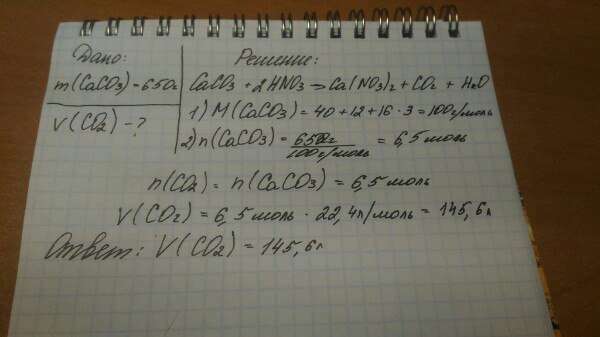 Дано:
m(CaCO₃) = 650г
V(CO₂) - ?
Решение:
CaCO₃ + 2HNO₃ = Ca(NO₃)₂ + CO₂ + H₂O
1) M(CaCO₃) = 40 + 12 + 16 · 3 = 100г/моль
2) n(CaCO₃) = 650г / 100г/моль = 6,5 моль
n(CO₂) = n(CaCO₃) = 6,5 моль
V(CO₂) = 6,5 моль · 22,4л/моль = 145,6л
Ответ: V(CO₂) = 145,6л